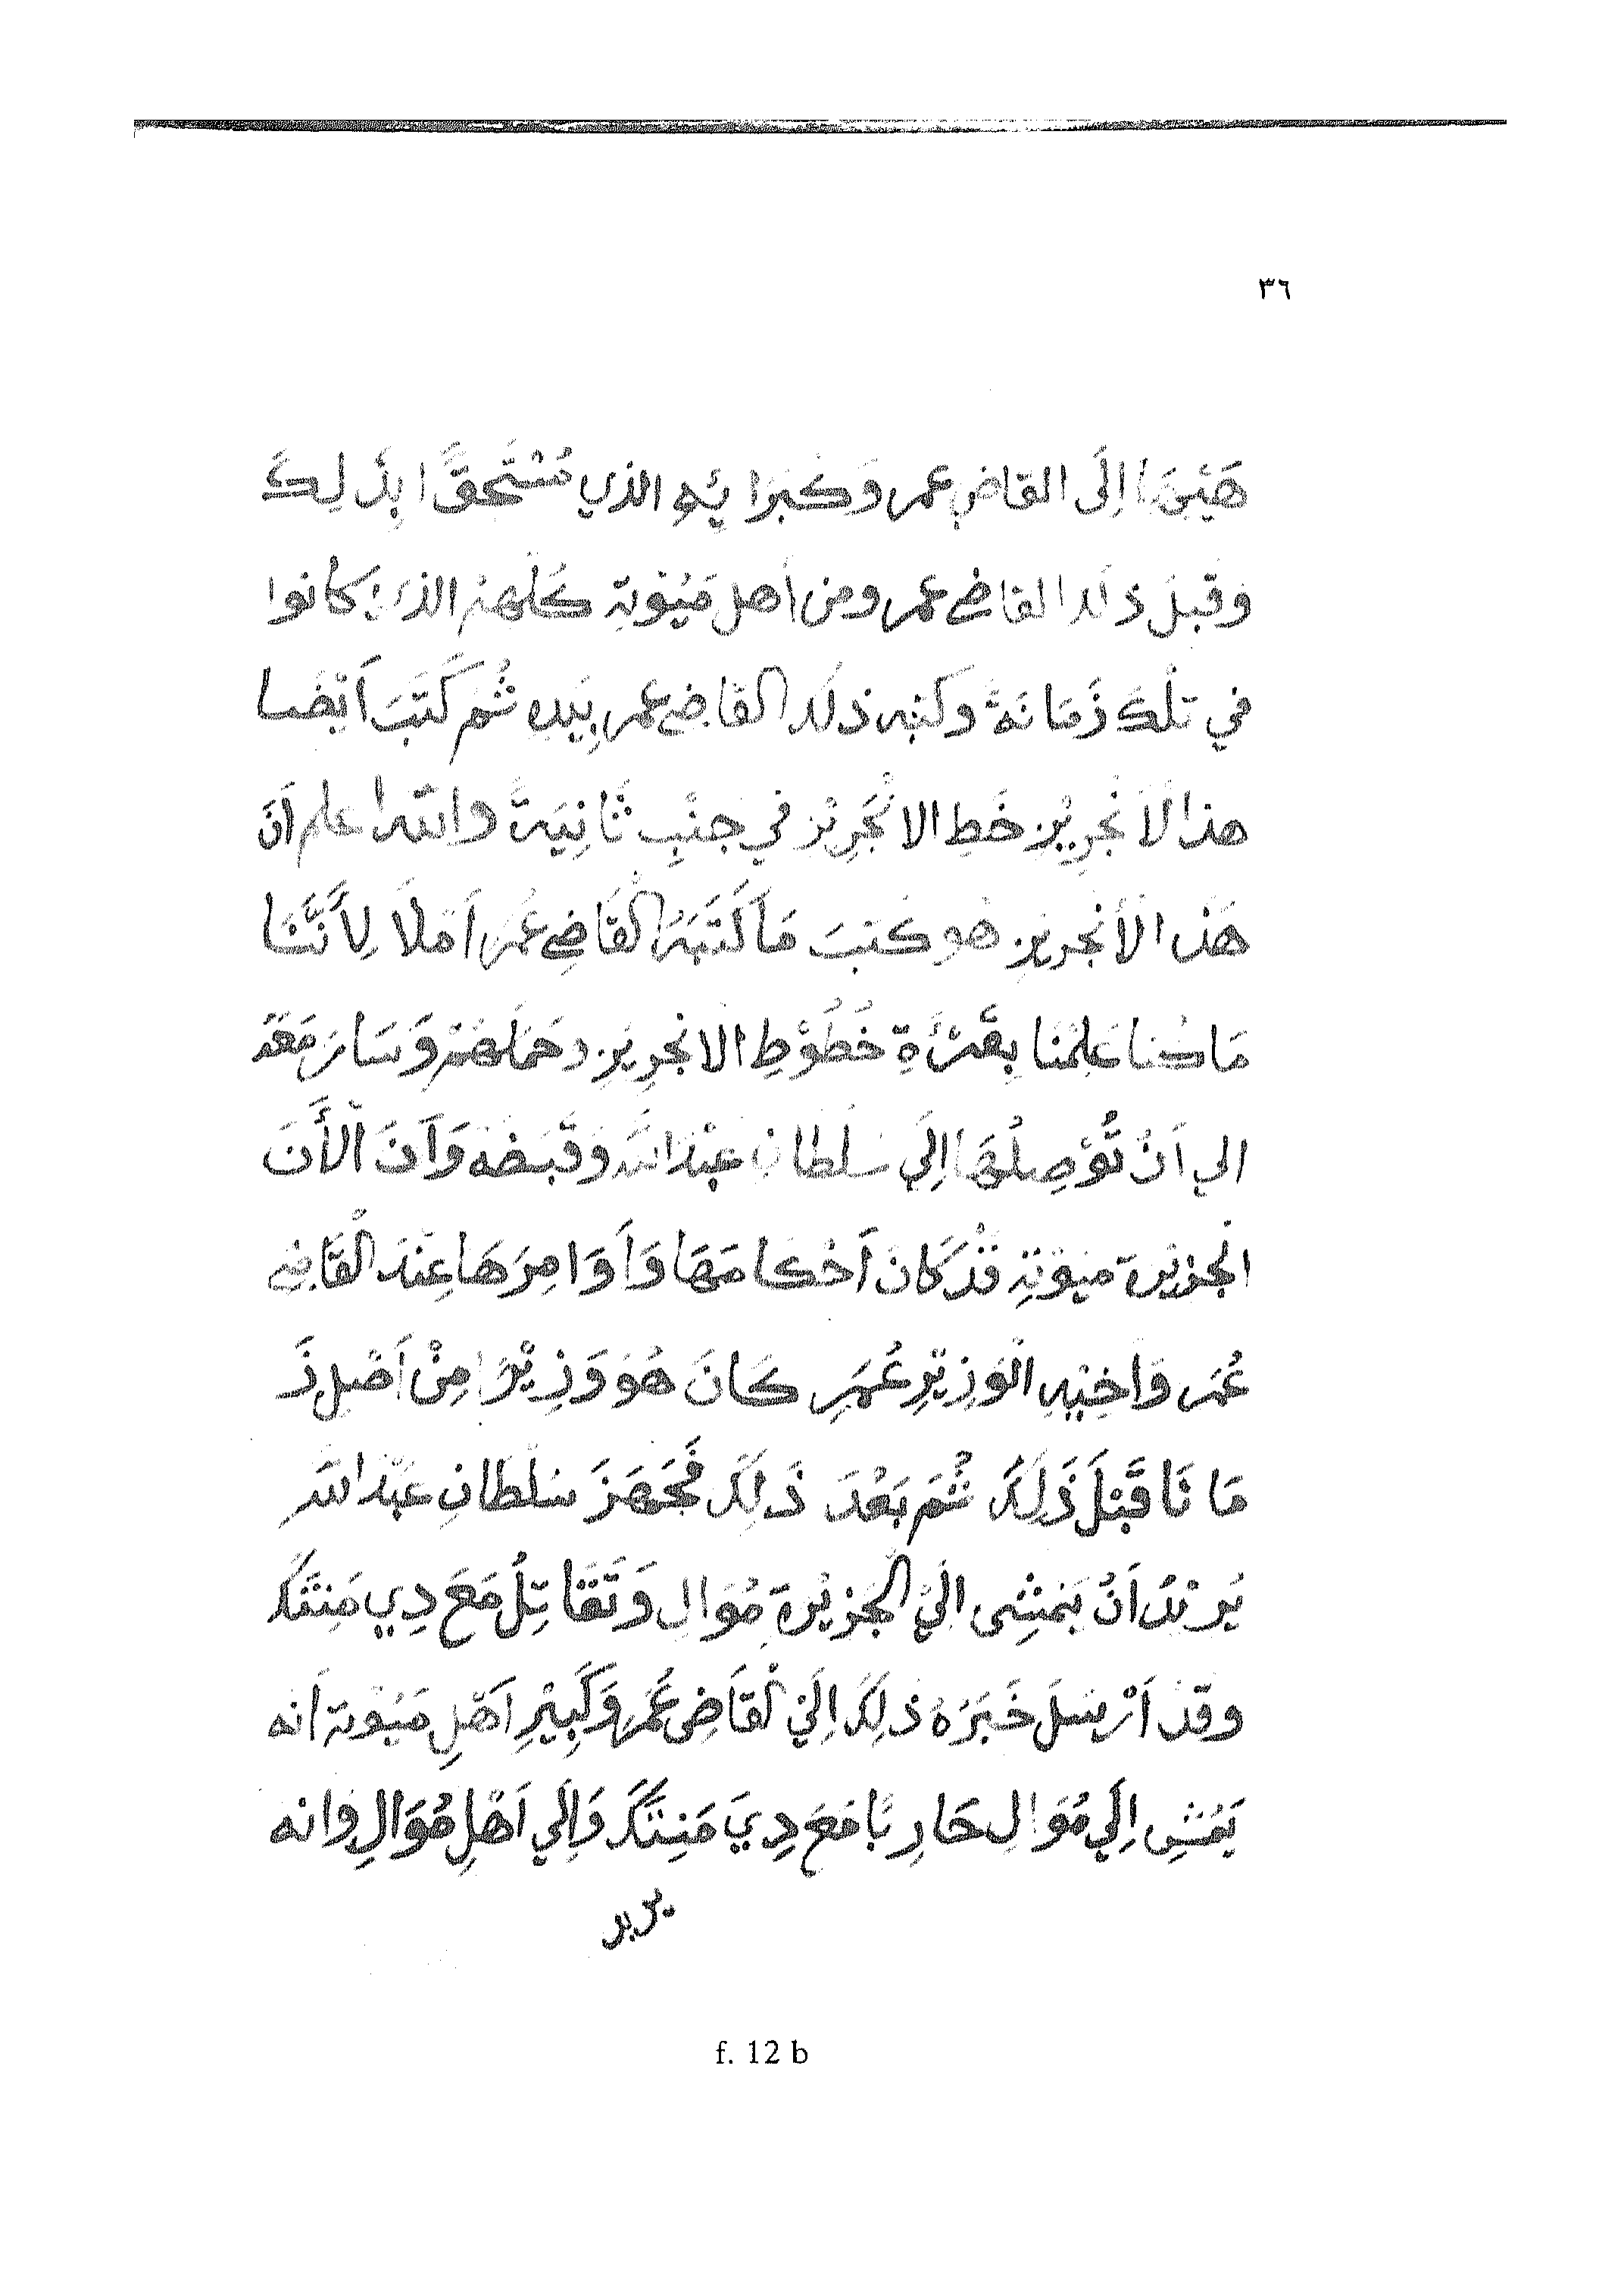 ٣٦
هَيْئَةً إِلَى القاضِ عمر وَكُبَرَا ئِهِ الذي مُسْتَحَقًّا بِذَ لِكَ
وَقَبِلَ ذَلك القاضي عمر ومن أهل مَيُوْتِة كُلّهم الذين كانوا
في تلْكَ زَمَانَةً وكتبه ذلك القاضي عمر بِيَدِهِ ثُم كَتَبَ اَيْضا
هذا الْاَنْجرِيْز خَطِ الانْجَرِيْز في جَنْبِ ثَانِيَةً والله اعلم اَنَّ
هَذا الأنجريز هو كتبَ مَاَ كَتَبَهُ القَاضِي عُمر اَمْلاً لِأَنَّنَا
مَا كُنا عَلِمْنا بِقَرْءَةِ خُطُوْطِ الانجرِيْز وحَمَلَهُمْ وَسَارَ مَعَهُ
الي اَنْ تُوْصِلُهَا اِلَي سُلْطان عَبْدَ اللّه وَقَبَضَهُ وَاَنَ الْأَنَ
الجزيْرة ميوْتِة قدْ كَانَ اَحْكَامَهَا وَاَوَامِرَهَا عِنْدَ الْقَاضِي
عُمَر وَاَخِيْهِ الْوَزِيْرِ عُمَرِ كَانَ هُوَ وَزِيْرًا مِنْ اَصْلِ زَ
مَا نَا قَبْلَ ذَلِكَ ثُمَ بَعْدَ ذَ لِكَ فَجَهَزَ سُلْطَانِ عَبْدَ اللَّهِ
يُرِيْدُ اَنْ يَمْشِى اِلَيْ الْجَزيْرة مُوَالِ وَتَقَاتِلُ مَعَ دِي مَنِتَكَ
وقَدْ اَرْسَلَ خَبَرَهُ ذَلِكَ اِلَيْ لْقَاضِى عُمَرَ وَكَبِيْرِ اَهْلِ مَيُوْتة اَنه
يَمْشِ اِلَي مُوَالِ حَارِبًا مَعَ دِيَ مَنِتَكَ وَاِلَي اَهْلِ مُوَالِ وَانه
يريد
f. 12 b